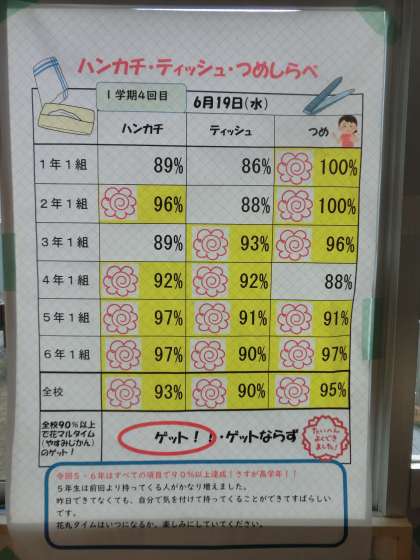 ハンカチ・ティッシュ・つめしらべ
1学期4回目 6月19日(水)
ハンカチ ティッシュ つめ
1年1組 89% 86% 100%
2年1組 96% 88% 100%
3年1組 89% 93% 96%
4年1組 92% 92% 88%
5年1組 97% 91% 91%
6年1組 97% 90% 97%
全校 93% 90% 95%
全校90%以上
で花マルタイム
(やすみじかん)
のゲット!
ゲット!!・ゲットならず
たいへん
よくでき
ました
今回5・6年はすべての項目で90%以上達成!さすが高学年!!
5年生は前回より持ってくる人がかなり増えました。
昨日できてなくても、自分で気を付けて持ってくることができてすばらしい
です。
花丸タイムはいつになるか。楽しみにしていてください。